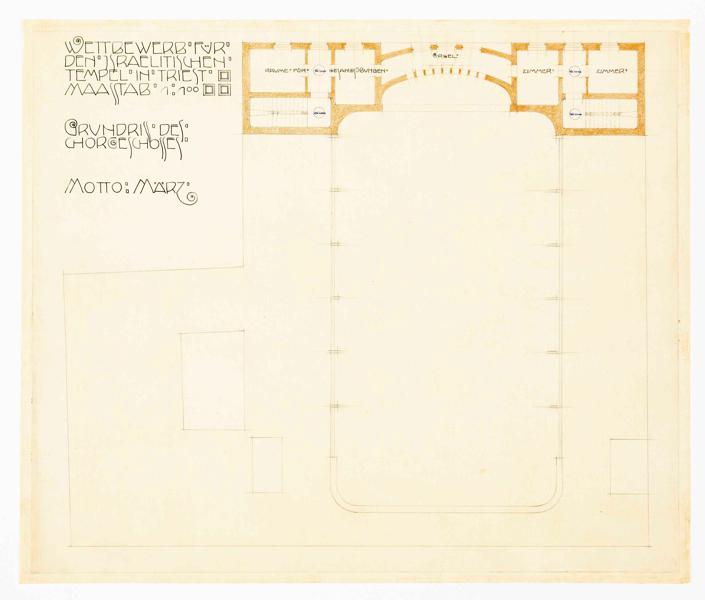 WETTBEWERB·FÜR·
DEN·ISRAELITISCHEN·
TEMPEL·IN·TRIEST·
MAASSTAB·1:100
GRUNDRISS·DES·
CHORGESCHOSSES·
MOTTO: MÄRZ·
ORGEL·
RÄUME·FÜR·GESANGSÜBUNGEN·
ZIMMER·
ZIMMER·